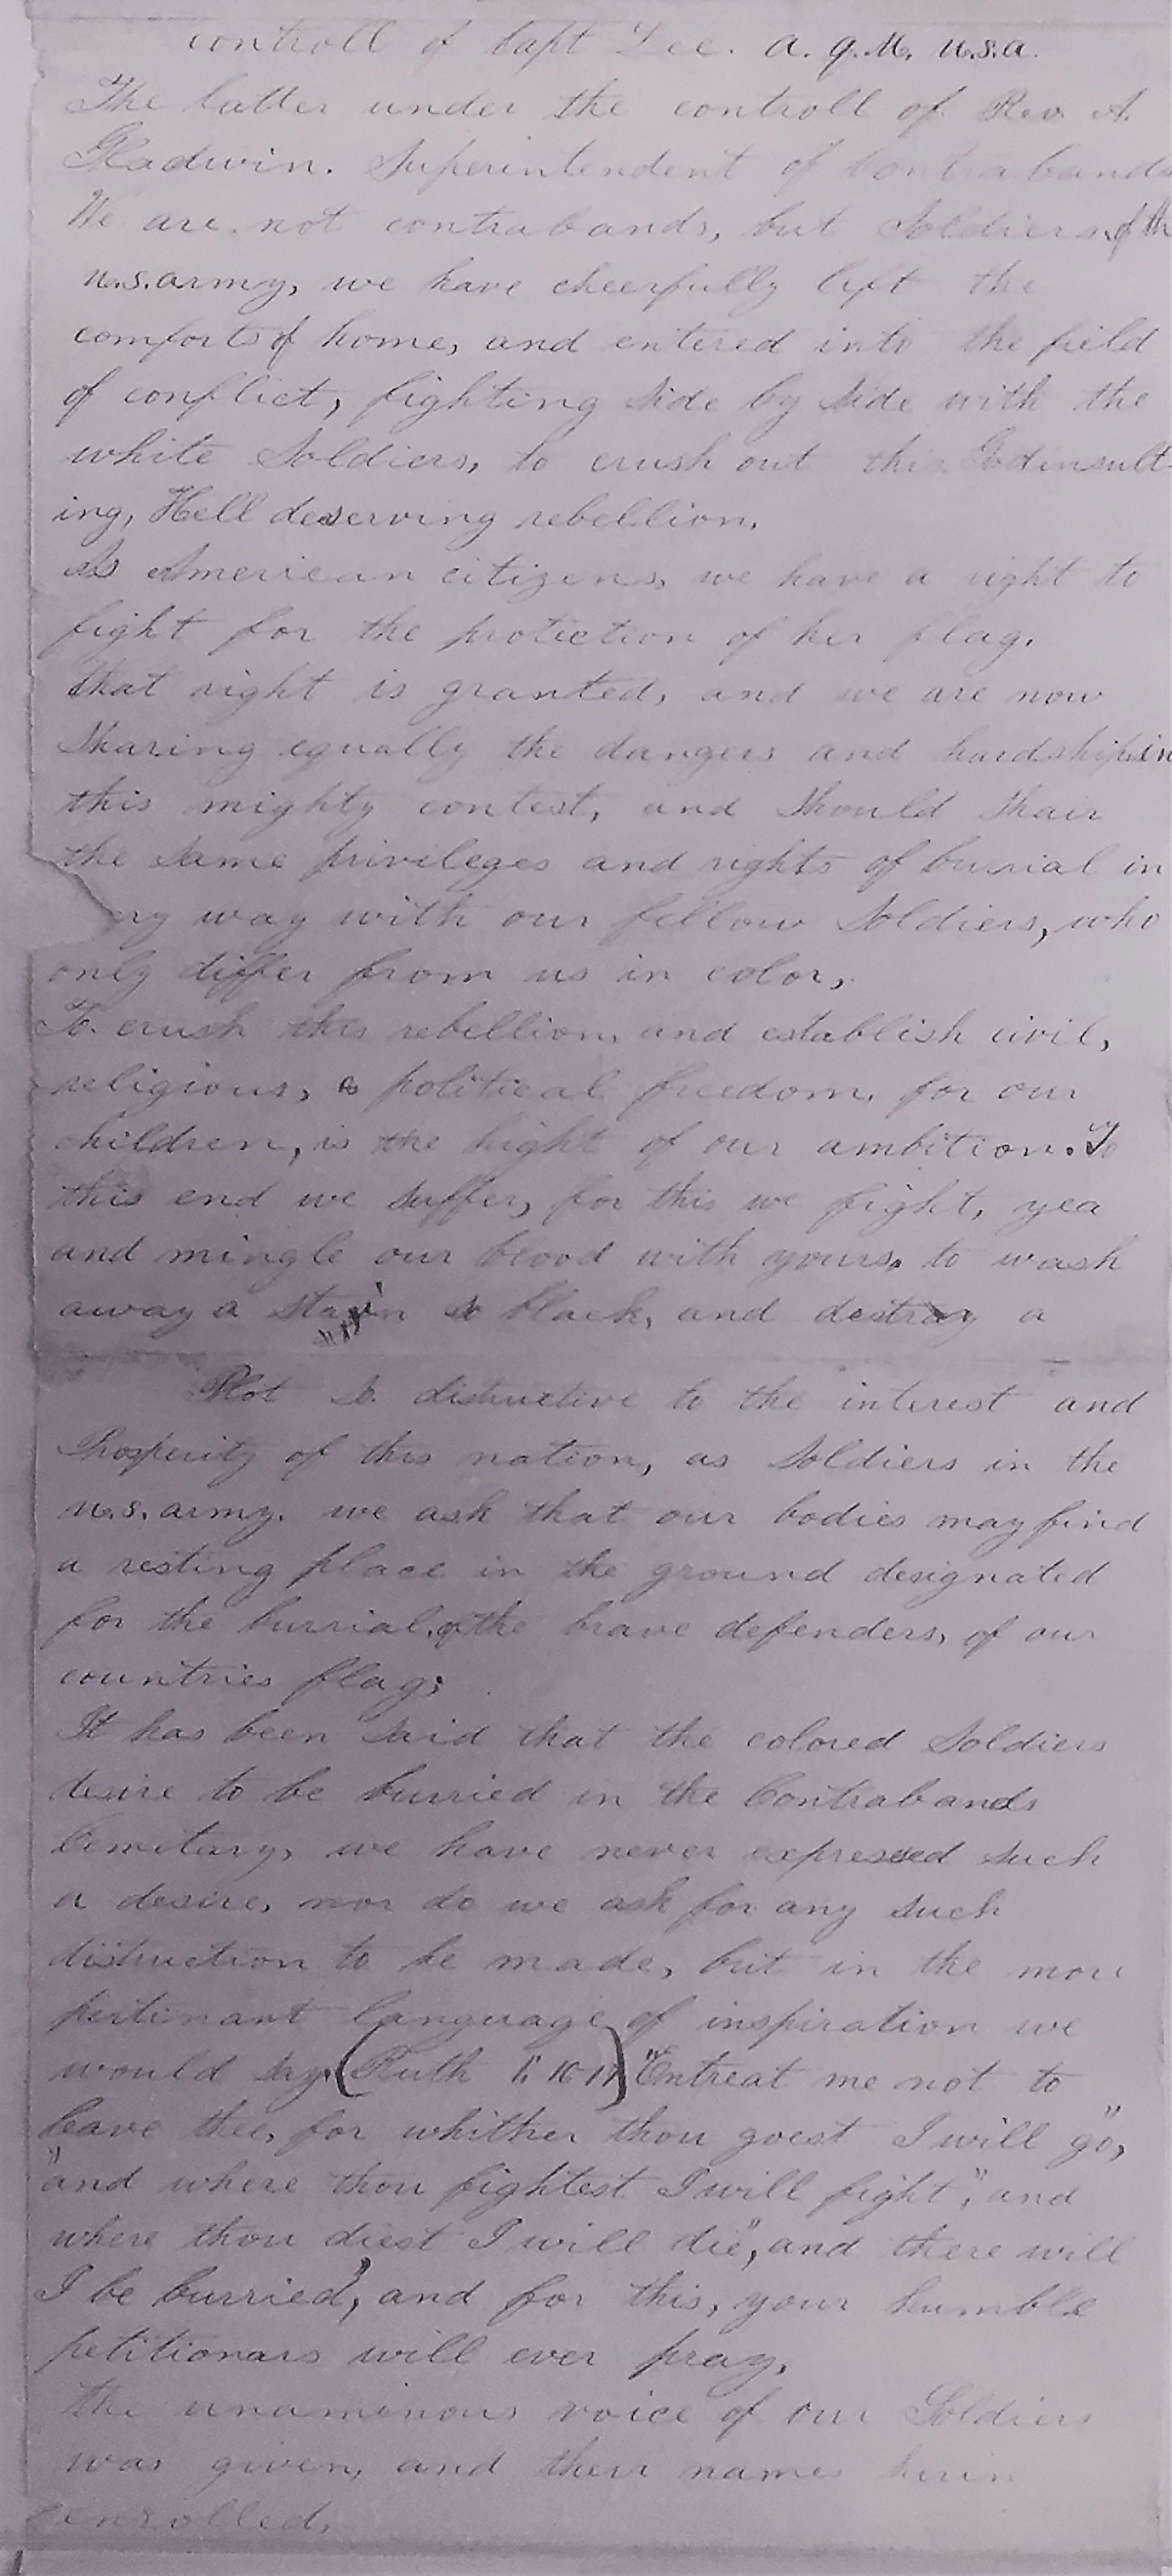 controll of Capt Lee. A. Q. M. U.S.A.
The latter under the controll of Rev. A.
Gladwin. Superintendent of Contrabands
We are not contrabands, but Soldiers of the
U.S. army, we have cheerfully left the
comforts of home, and entered into the field
of conflict, fighting side by side with the
white Soldiers, to crush out this God insult-
ing, Hell deserving rebellion.
As American citizens, we have a right to
fight for the protection of her flag,
that right is granted, and we are now
Sharing equally the dangers and hardships in
this mighty contest, and should shair
the same privileges and rights of burial in
ny way with our fellow Soldiers, who
only differ from us in color,
To crush this rebellion, and establish civil,
religious, & political freedom, for our
children, is the hight of our ambition. To
this end we suffer, for this we fight, yea
and mingle our blood with yours, to wash
away a stain so black, and destroy a
Plot so distructive to the interest and
Prosperity of this nation, as Soldiers in the
U.S. army. we ask that our bodies may find
a resting place in the ground designated
for the burrial, of the brave defenders, of our
countries flag;
It has been said that the colored Soldiers
desire to be burried in the Contrabands
Cemetary, we have never expressed such
a desire, nor do we ask for any such
distinction to be made, but in the more
pertinant language of inspiration we
would say (Ruth 1: 16 17) "Entreat me not to
leave thee, for whither thou goest I will go",
"and where thou fightest I will fight", and
where thou diest I will die", and there will
I be burried", and for this, your humble
petitionars will ever pray,
the unaminous voice of our Soldiers
was given, and their names herin
enrolled,